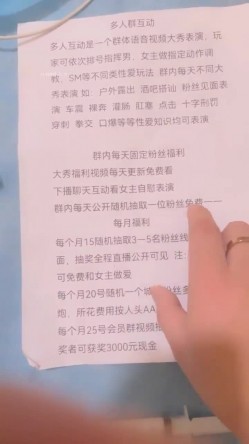 多人群互动
多人互动是一个群体语音视频大秀表演，玩
家可依次排号指挥男，女主做指定动作调
教，SM等不同类性爱玩法 群内每天不同大
秀表演 如： 户外露出 酒吧搭讪 粉丝见面表
演 车震 裸奔 灌肠 肛塞 点击 十字刑罚
穿刺 拳交 口爆等等性爱知识均可表演
群内每天固定粉丝福利
大秀福利视频每天更新免费看
下播聊天互动看女主自慰表演
群内每天公开随机抽取一位粉丝免费一一
每月福利
每个月15随机抽取3-5名粉丝线
面，抽奖全程直播公开可见 注：
可免费和女主做爱
每个月20号随机一个城
炮，所花费用按人头AA
每个月25号会员群视频抽
奖者可获奖3000元现金